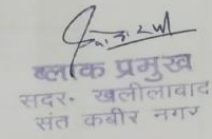 ब्लाक प्रमुख
सदर- खलीलाबाद
संत कबीर नगर